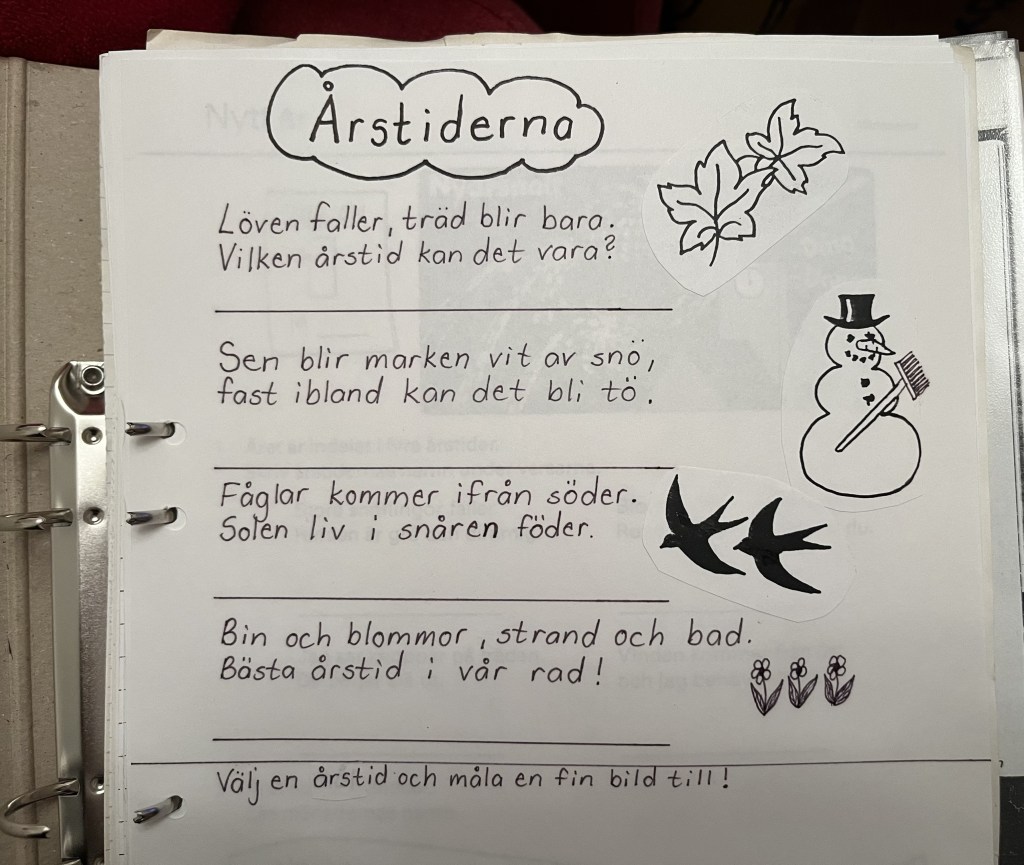 Årstiderna
Löven faller, träd blir bara.
Vilken årstid kan det vara?
Sen blir marken vit av snö,
fast ibland kan det bli tö.
Fåglar kommer ifrån söder.
Solen liv i snåren föder.
Bin och blommor, strand och bad.
Bästa årstid i vår rad!
Välj en årstid och måla en fin bild till!